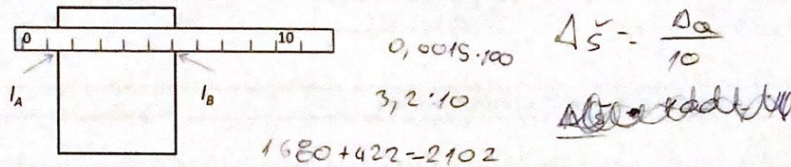 0 10
l_A l_B
0,0015·100
3,2·10
1680+422=2102
Δš = Δa/10